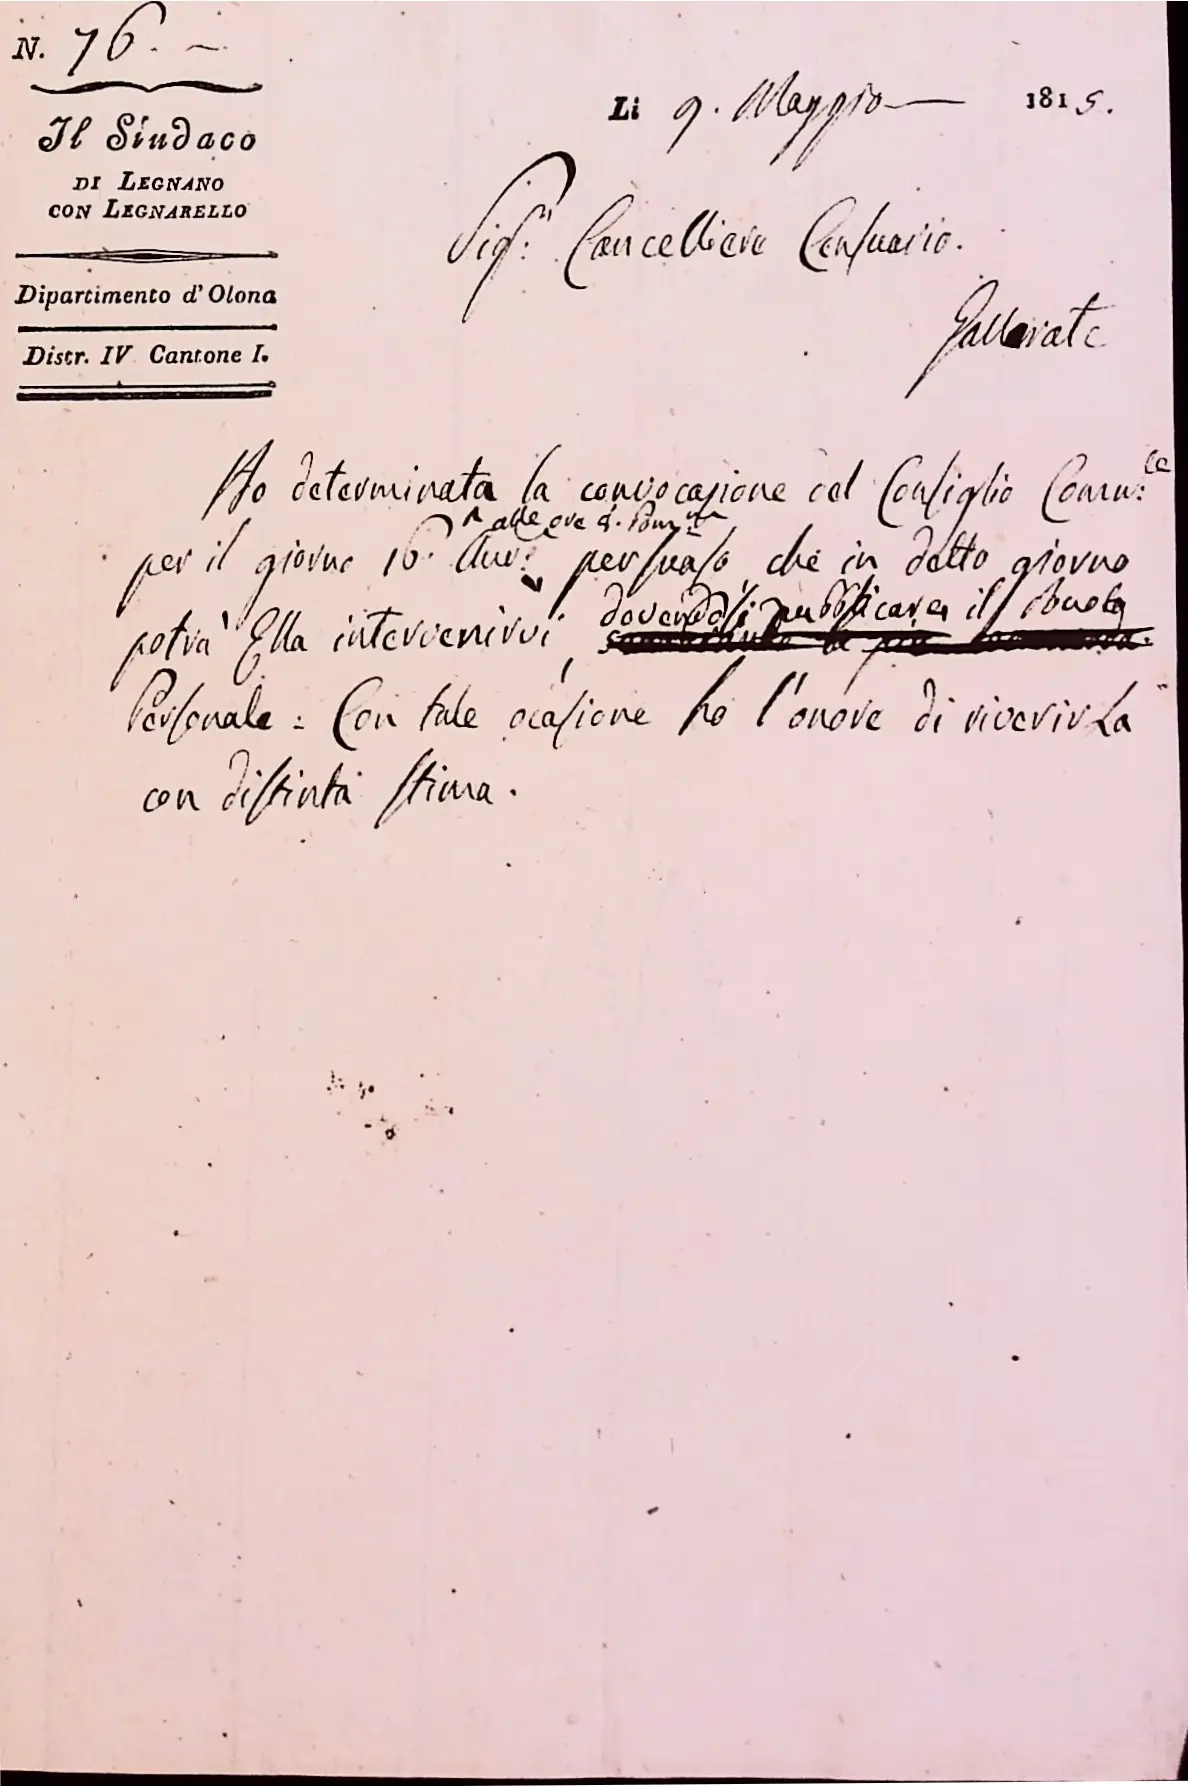 N. 76. –
Il Sindaco
DI LEGNANO
CON LEGNARELLO
Dipartimento d' Olona
Distr. IV Cantone I.
Li 9. Maggio — 1815.
Sigr: Cancelliere Censuario.
Gallarate
Ho determinata la convocazione del Consiglio Comu:le
alle ore
per il giorno 16. Cur.e persuaso che in detto giorno
dovendosi pubblicare il Ruolo
potrà Ella intervenirvi,
Personale: Con tale ocasione ho l'onore di riverirLa
con distinta stima.